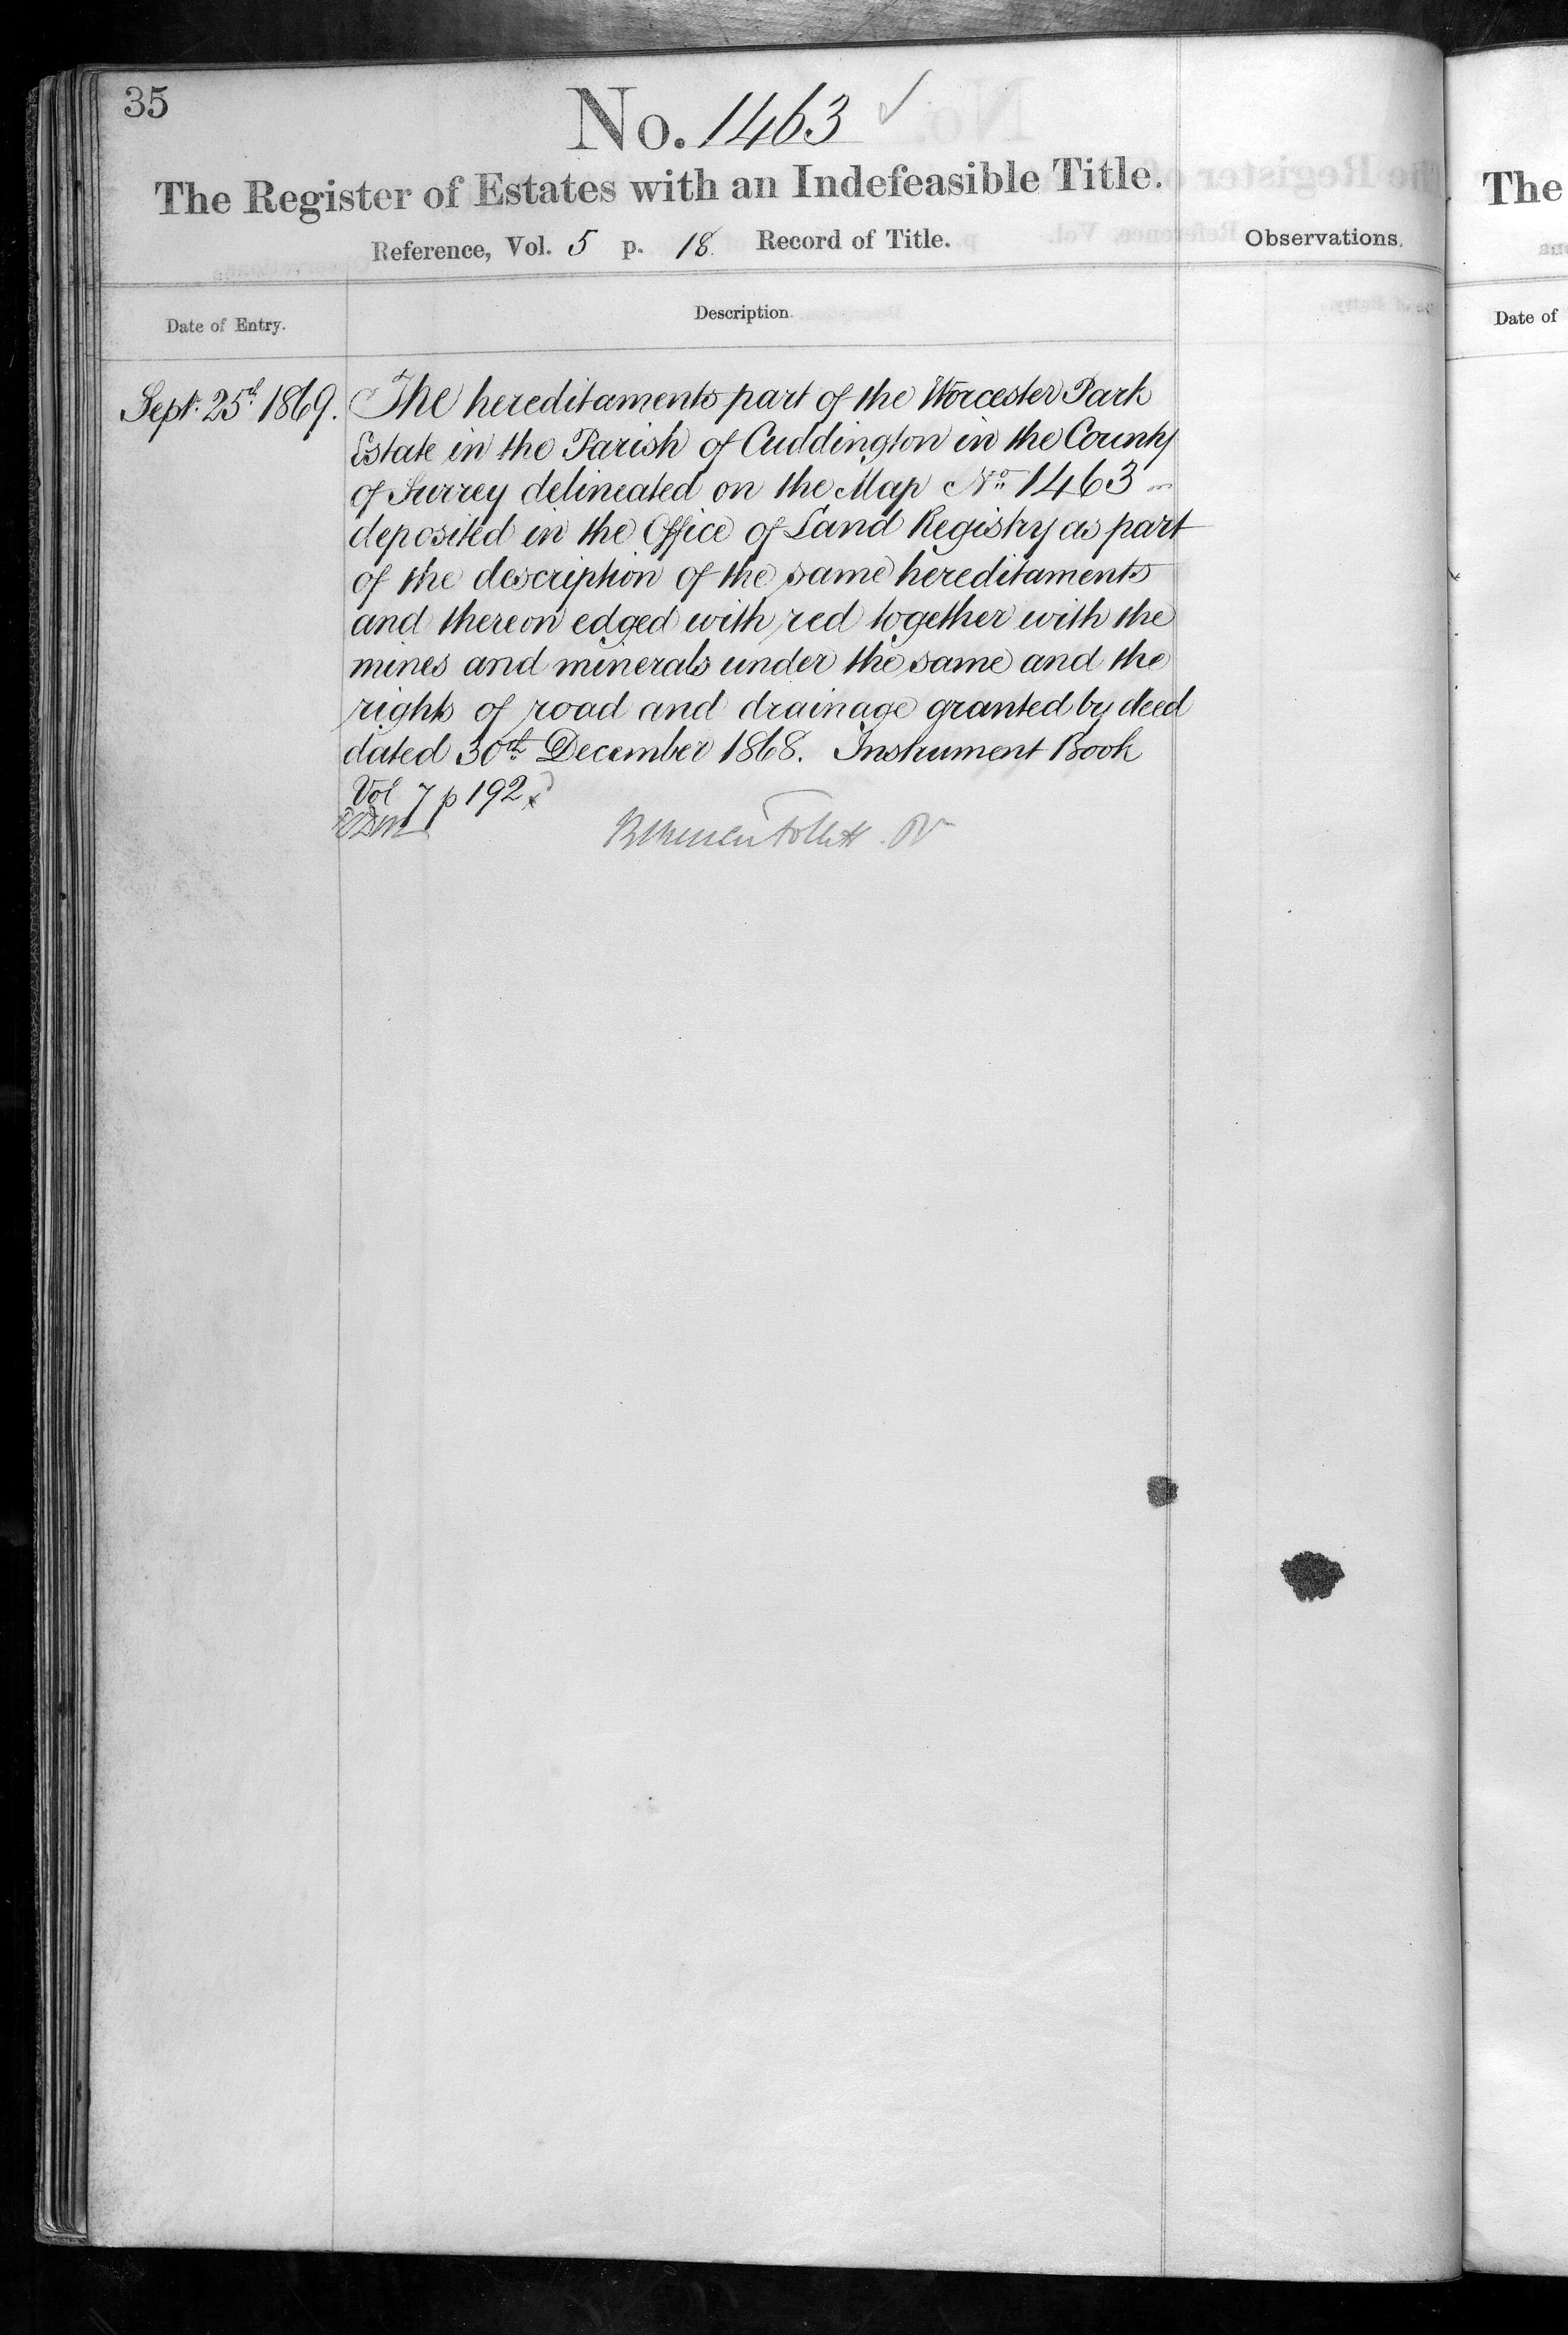 35
No. 1463 ✓
The Register of Estates with an Indefeasible Title.
Reference, Vol. 5 p. 18. Record of Title.
Observations.
Date of Entry.
Description.
Sept. 25th 1869.
The hereditaments part of the Worcester Park
Estate in the Parish of Cuddington in the County
of Surrey delineated on the Map No. 1463
deposited in the Office of Land Registry as part
of the description of the same hereditaments
and thereon edged with red together with the
mines and minerals under the same and the
rights of road and drainage granted by deed
dated 30th December 1868. Instrument Book
Vol 7 p 192
Follett
The
Date of